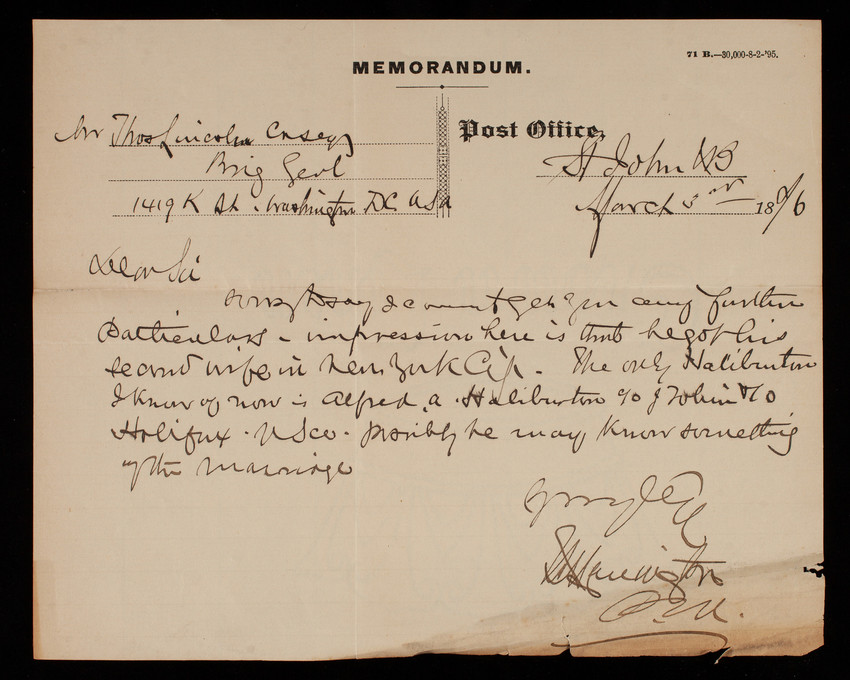 71 B.—30,000-8-2-'95.
MEMORANDUM.
Post Office,
Mr Thos Lincoln Casey
Brig Genl
1419 K St. Washington DC USA
St John NB
March 3rd 1896
Dear Sir
Sorry to say I cannot get you any further
Particulars - impression here is that he got his
second wife in New York City. The only Haliburton
I know of now is Alfred. a. Haliburton c/o J Tobin & Co
Halifax. N Sco. possibly he may know something
of the marriage
Yours
Hanington
P.M.